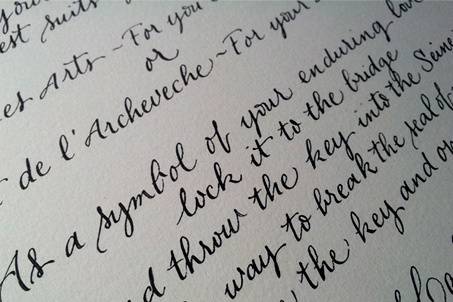 est suits
es Arts ~ For you
or
de l'Archeveche ~ For your
As a symbol of your enduring love
lock it to the bridge
throw the key into the Seine
way to break the seal of
the key and